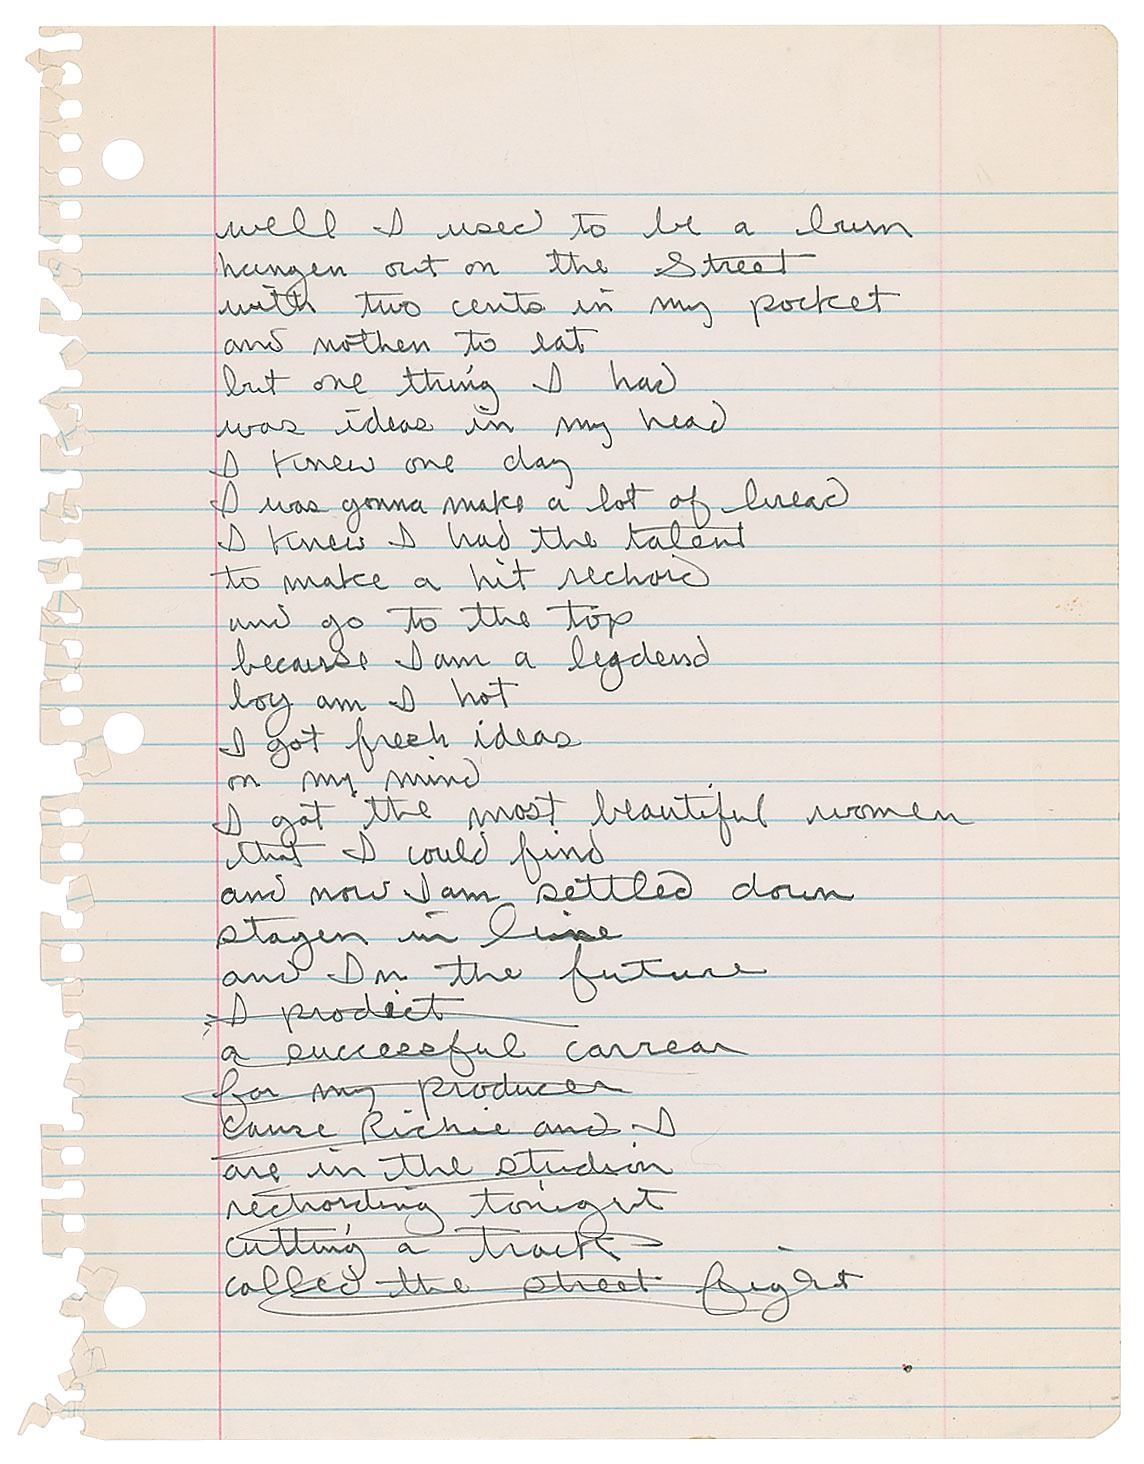 well I used to be a bum
hangen out on the Street
with two cents in my pocket
and nothen to eat
but one thing I had
was ideas in my head
I knew one day
I was gonna make a lot of bread
I knew I had the talent
to make a hit rechord
and go to the top
because I am a legdend
boy am I hot
I got fresh ideas
on my mind
I got the most beautiful women
that I could find
and now I am settled down
stayen in line
and In the future
I prodict
a successful carrear
for my producer
cause Richie and I
are in the studion
rechording tonight
cutting a track
called the street fight